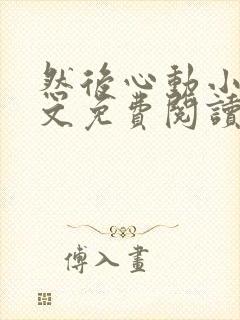 然後心動小
文免費閱讀
傅入畫